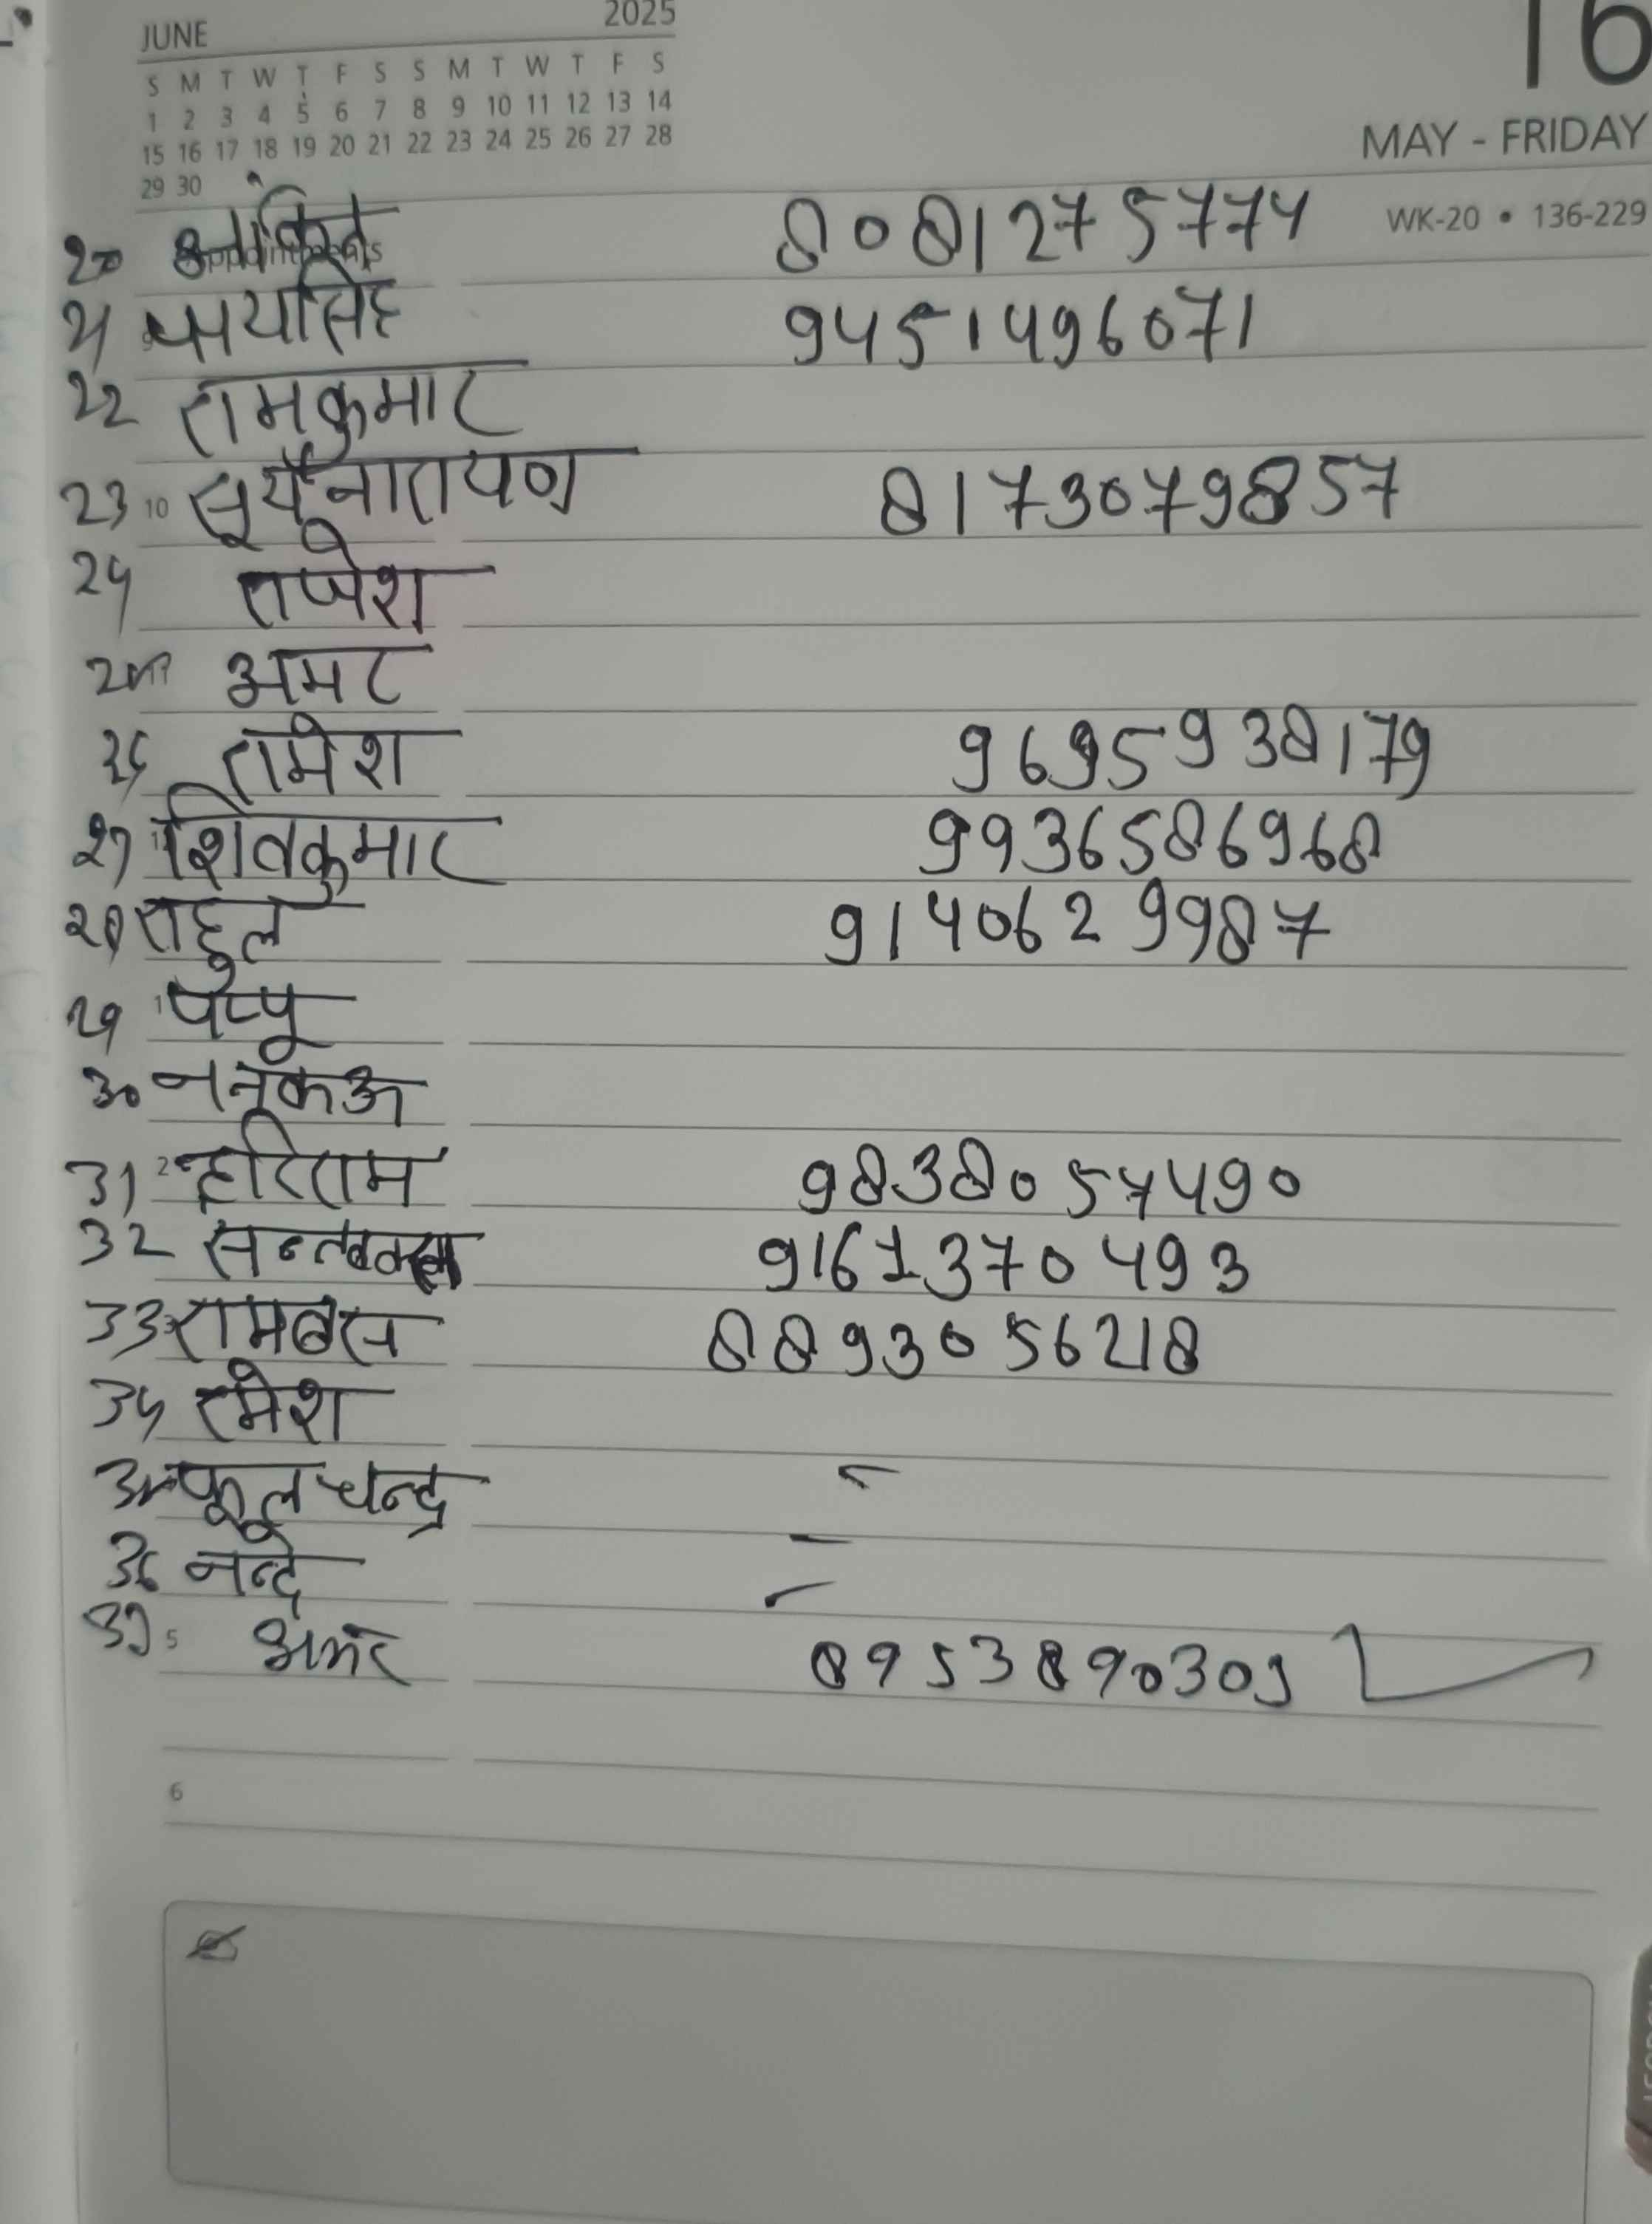 JUNE 2025
S M T W T F S S M T W T F S
1 2 3 4 5 6 7 8 9 10 11 12 13 14
15 16 17 18 19 20 21 22 23 24 25 26 27 28
29 30
16
MAY - FRIDAY
WK-20 • 136-229
Appointments
20 अंकित 8081275774
21 9451496071
22 रामकुमार
23 10 सूर्यनारायण 8173079857
24 राजेश
25 अमर
26 रामेश 9695938179
27 शिवकुमार 9936586968
28 राहुल 9140629987
29 1 पप्पू
30 ननकऊ
31 2 हरिराम 9838057490
32 9161370493
33 रामबस 8893056218
34 रमेश
35 फूलचन्द्र -
36 नन्दे -
-
37 5 अमर 8953890309
6